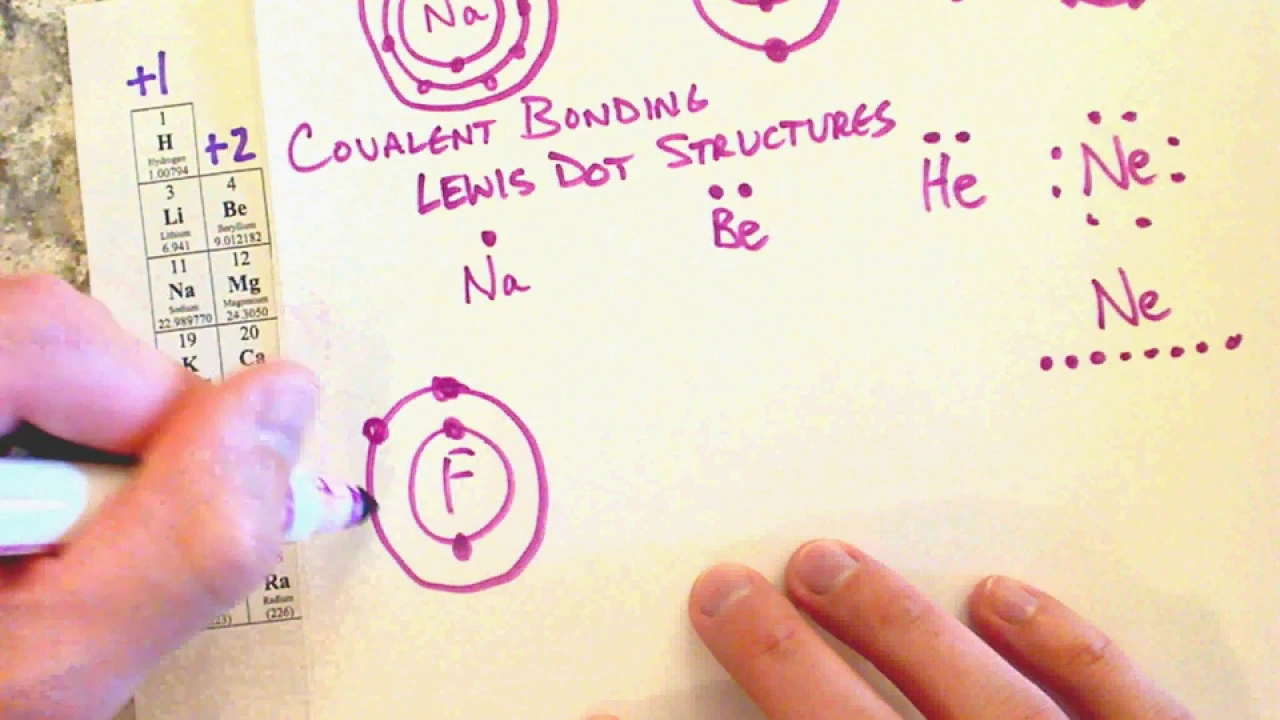 Na
+1
1
H
Hydrogen
1.00794
+2
3
Li
Lithium
6.941
4
Be
Beryllium
9.012182
11
Na
Sodium
22.989770
12
Mg
Magnesium
24.3050
19
K
20
Ca
Ra
Radium
(226)
COVALENT BONDING
LEWIS DOT STRUCTURES
Na
Be
He
Ne
Ne
F